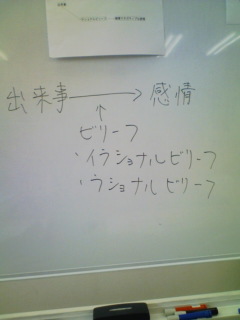 出来事 → 感情
↑
ビリーフ
・イラショナルビリーフ
・ラショナルビリーフ